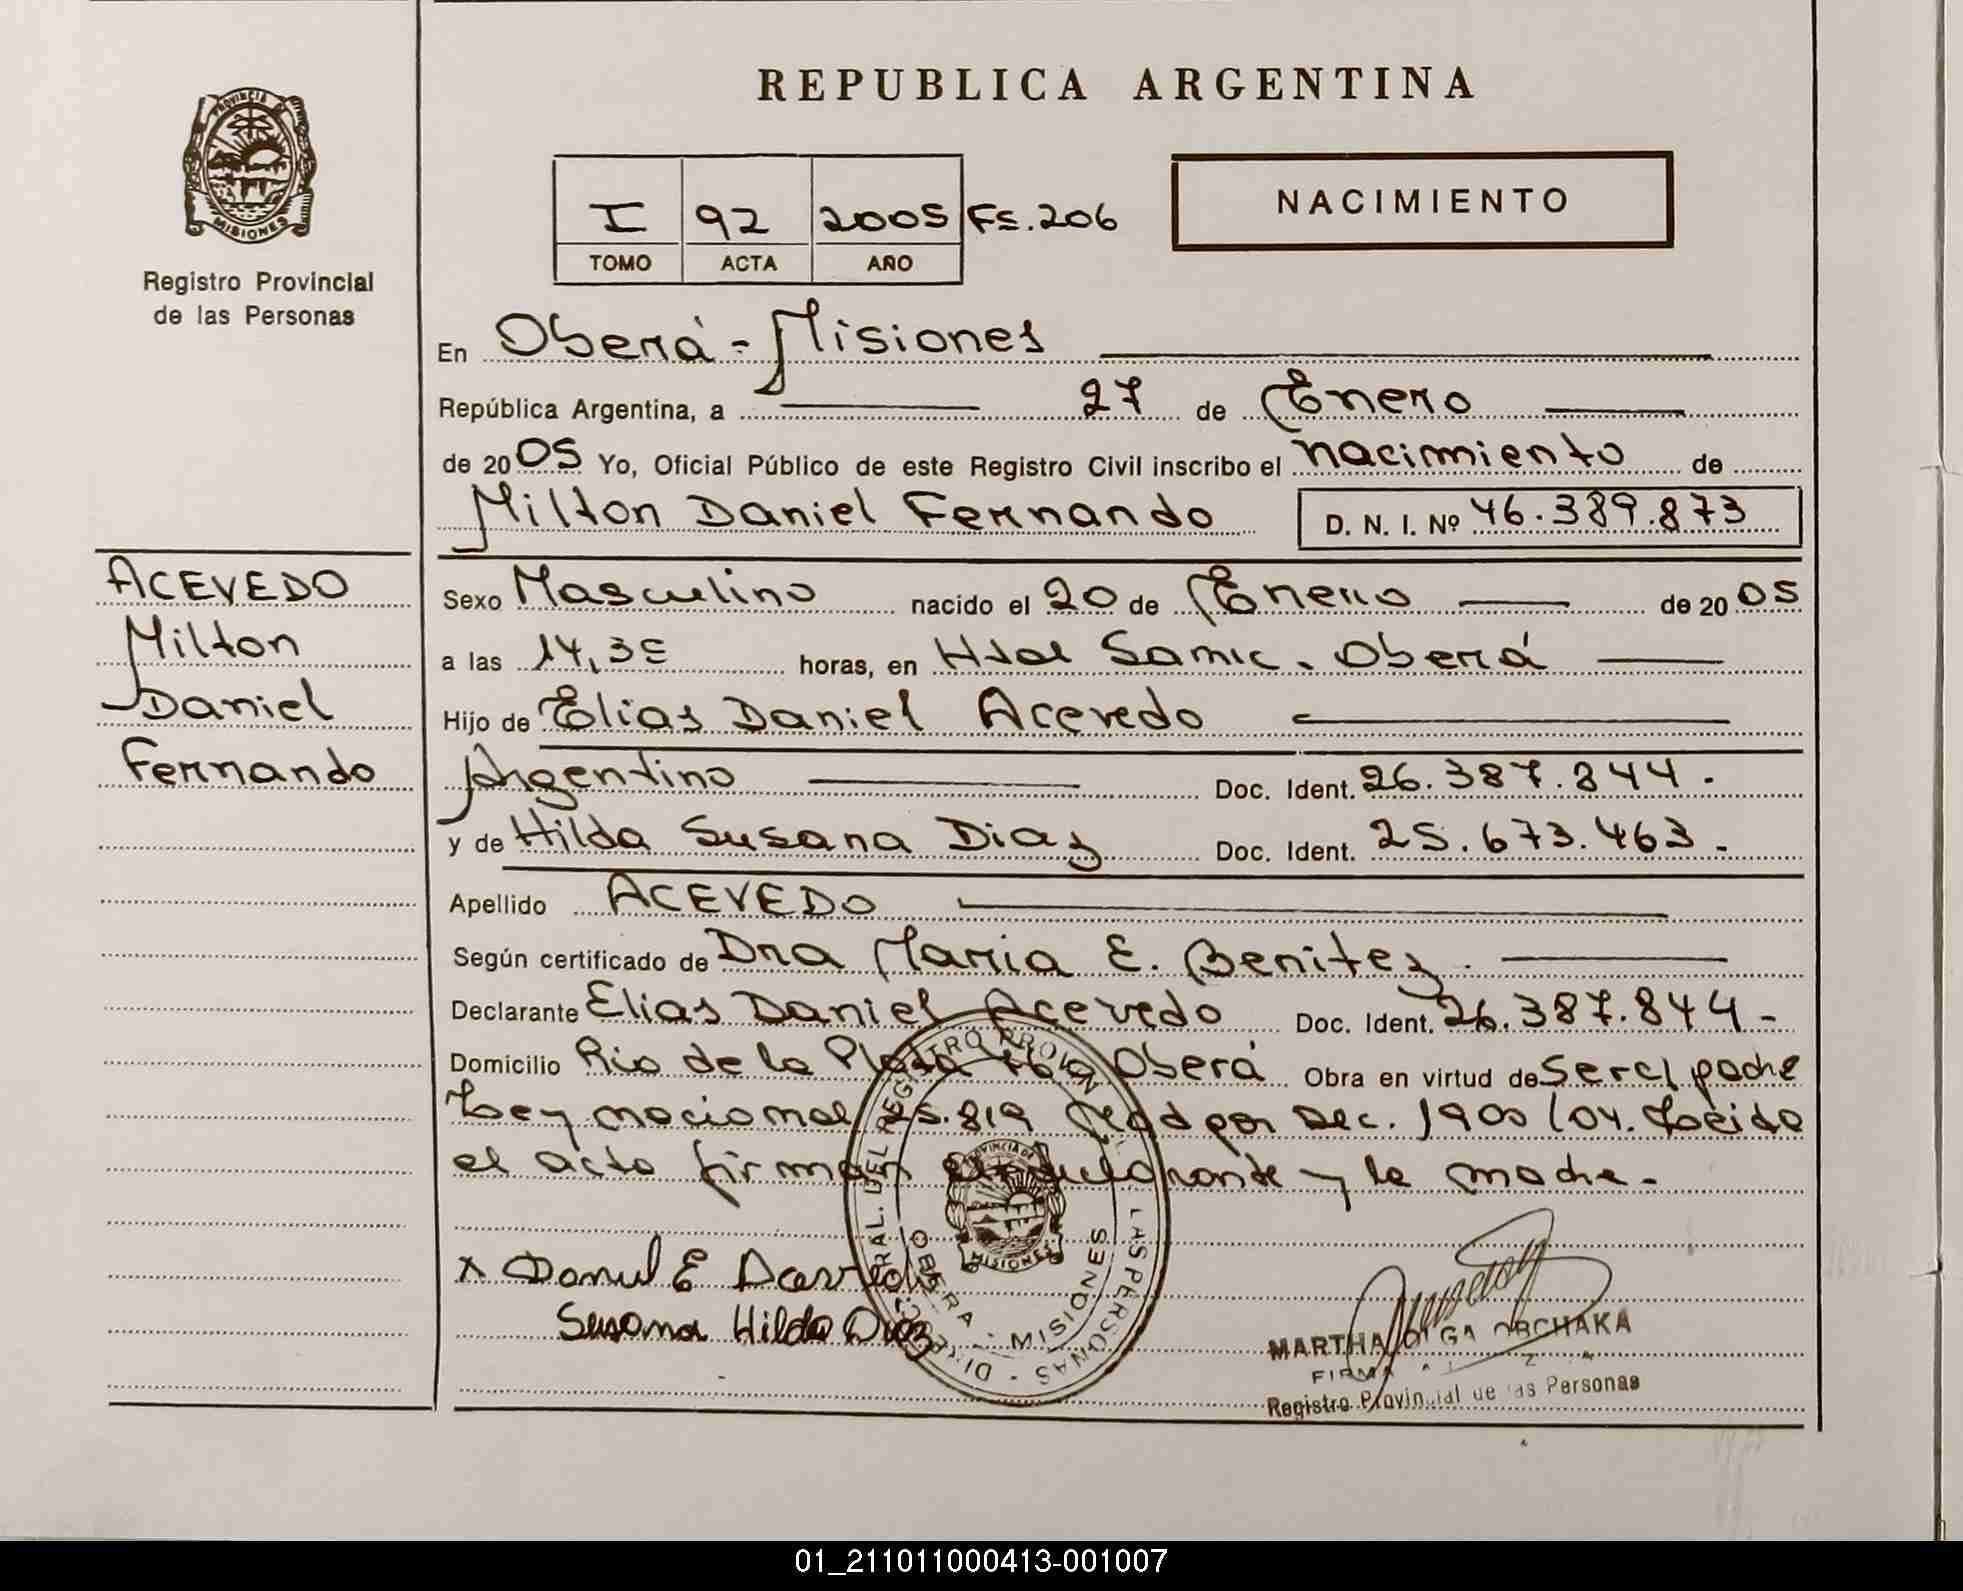 REPUBLICA ARGENTINA
PROVINCIA DE
MISIONES
Registro Provincial
de las Personas
NACIMIENTO
I 92 2005 Fs. 206
TOMO ACTA AÑO
En Oberá - Misiones
República Argentina, a 27 de Enero
de 2005 Yo, Oficial Público de este Registro Civil inscribo el nacimiento de
Milton Daniel Fernando D. N. I. Nº 46.389.873
ACEVEDO
Milton
Daniel
Fernando
Sexo Masculino nacido el 20 de Enero de 2005
a las 14,35 horas, en Samic. Oberá
Hijo de Elias Daniel Acevedo
Argentino Doc. Ident. 26.387.844.
y de Hilda Susana Diaz Doc. Ident. 25.673.463.-
Apellido ACEVEDO
Según certificado de Dra Maria E. Benitez.
Declarante Elias Daniel Acevedo Doc. Ident. 26.387.844-
Domicilio Rio de la Plata Oberá Obra en virtud de ser el padre
Ley nacional 25.819 por Dec. 1900/04. Leido
el acta firman el declarante y la madre.-
x Daniel E Acevedo
Susana Hilda Diaz
REGISTRO LAS PERSONAS
OBERA - MISIONES
PROVINCIA DE
MISIONES
MARTHA OLGA
FIRMA
Registro Provincial de las Personas
01_211011000413-001007